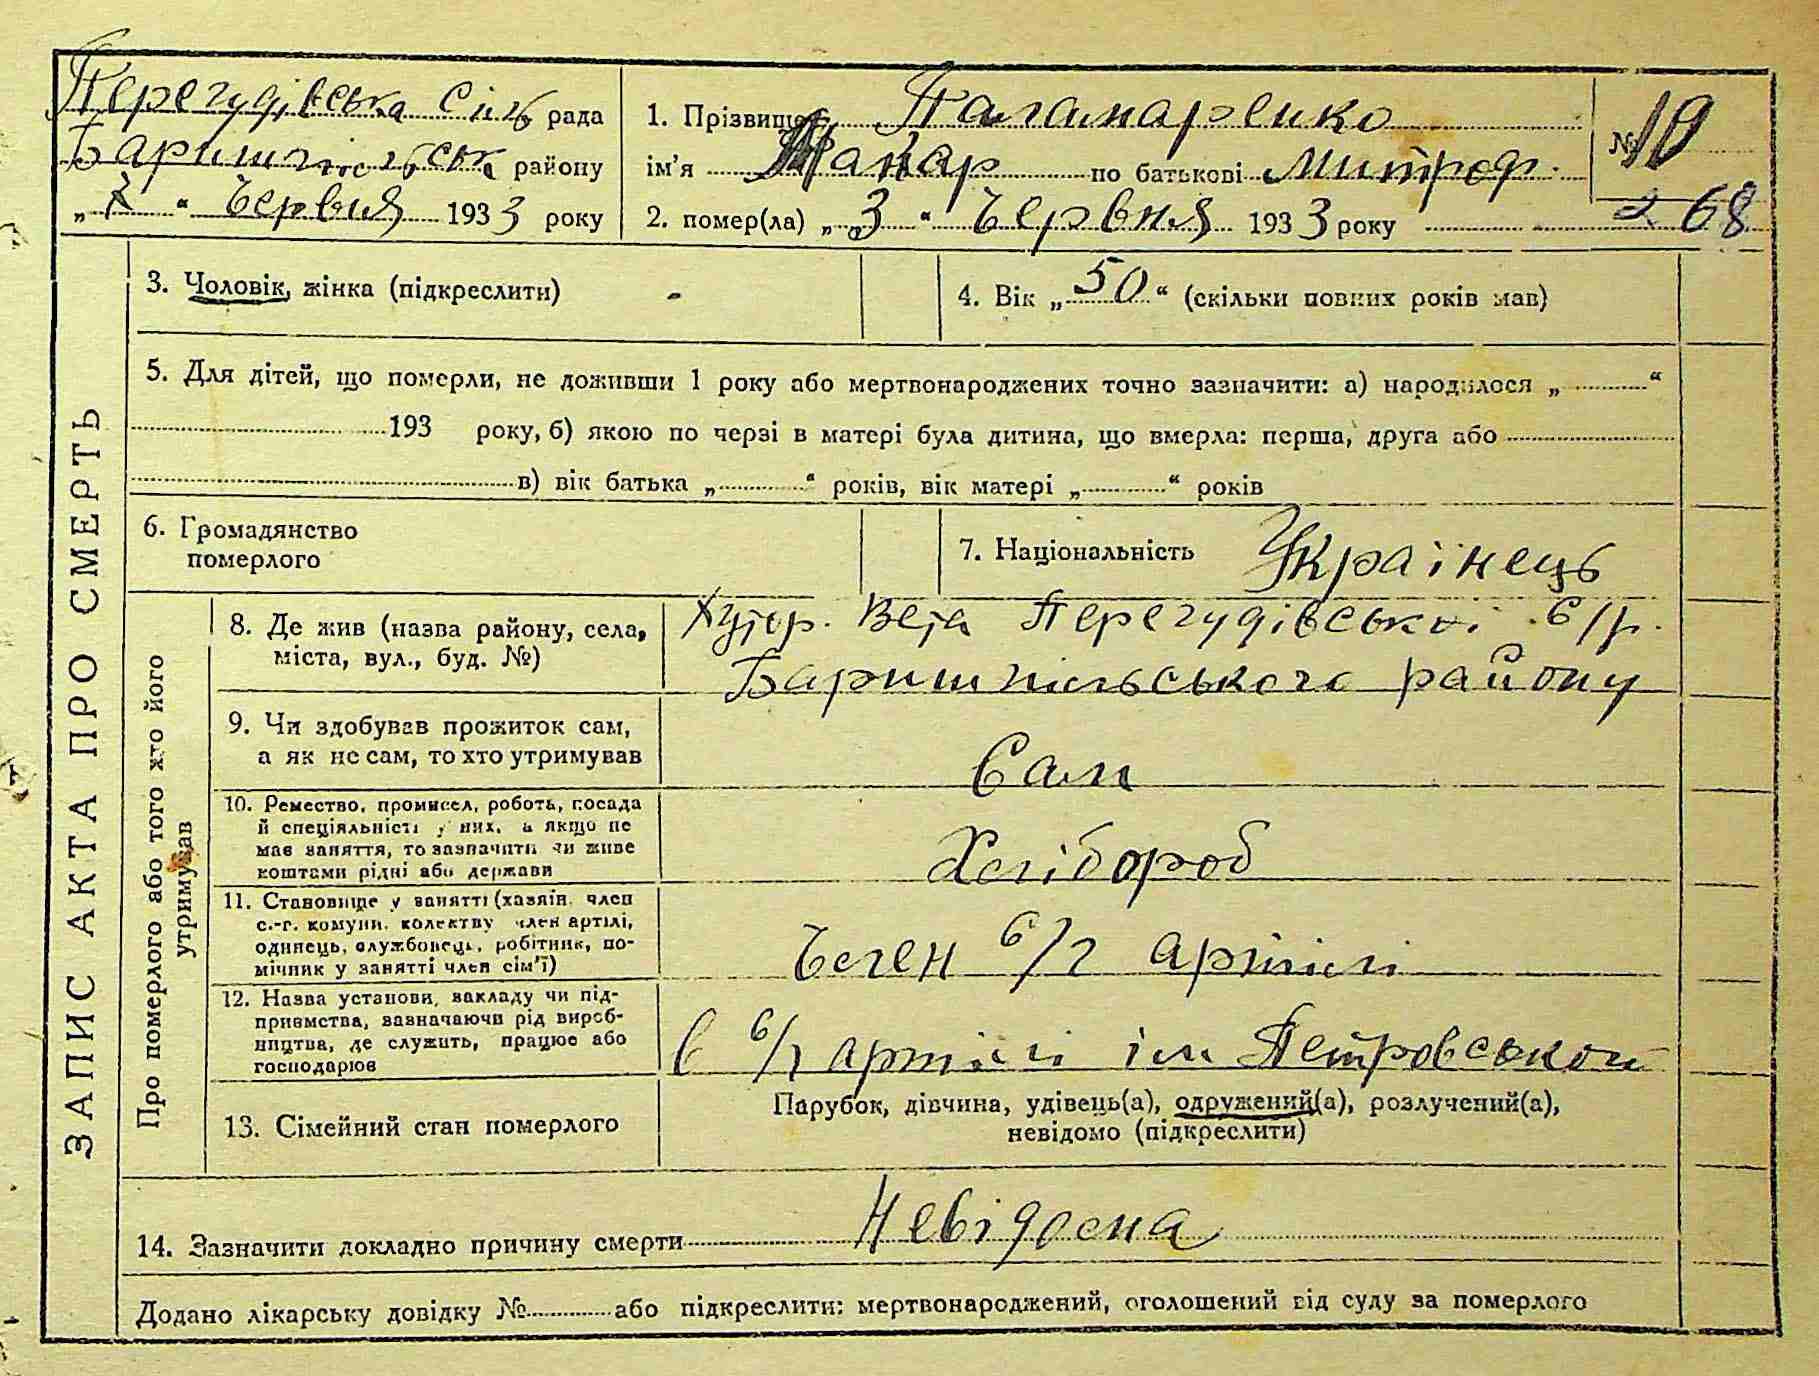 ЗАПИС АКТА ПРО СМЕРТЬ
Перегудівська Сіль рада
Баришпільська району
„ 7 “ Червня 1933 року
1. Прізвище Паламаренко
ім’я Макар по батькові Митроф.
2. помер(ла) „ 3 “ Червня 1933 року
№ 10
268
3. Чоловік, жінка (підкреслити) -
4. Вік „ 50 “ (скільки повних років мав)
5. Для дітей, що померли, не доживши 1 року або мертвонароджених точно зазначити: а) народилося „ “
193 року, б) якою по черзі в матері була дитина, що вмерла: перша, друга або
в) вік батька „ “ років, вік матері „ “ років
6. Громадянство
померлого
7. Національність Українець
Про померлого або того хто його
утримував
8. Де жив (назва району, села,
міста, вул., буд. №)
Хутор. Вета Перегудівської с/р.
Баришпільського району
9. Чи здобував прожиток сам,
а як не сам, то хто утримував
Сам
10. Ремество, промисел, робота, посада
й спеціяльність у них, а якщо не
має заняття, то зазначити чи живе
коштами рідні або держави
Хлібороб
11. Становище у занятті (хазяїн, член
с.-г. комуни, колективу член артілі,
одинець, службовець, робітник, по-
мічник у занятті член сім’ї)
Член с/г артілі
12. Назва установи, закладу чи під-
приємства, зазначаючи рід вироб-
ництва, де служить, працює або
господарює
в с/г артілі ім Петровського
13. Сімейний стан померлого
Парубок, дівчина, удівець(а), одружений(а), розлучений(а),
невідомо (підкреслити)
14. Зазначити докладно причину смерти Невідома
Додано лікарську довідку № або підкреслити: мертвонароджений, оголошений від суду за померлого